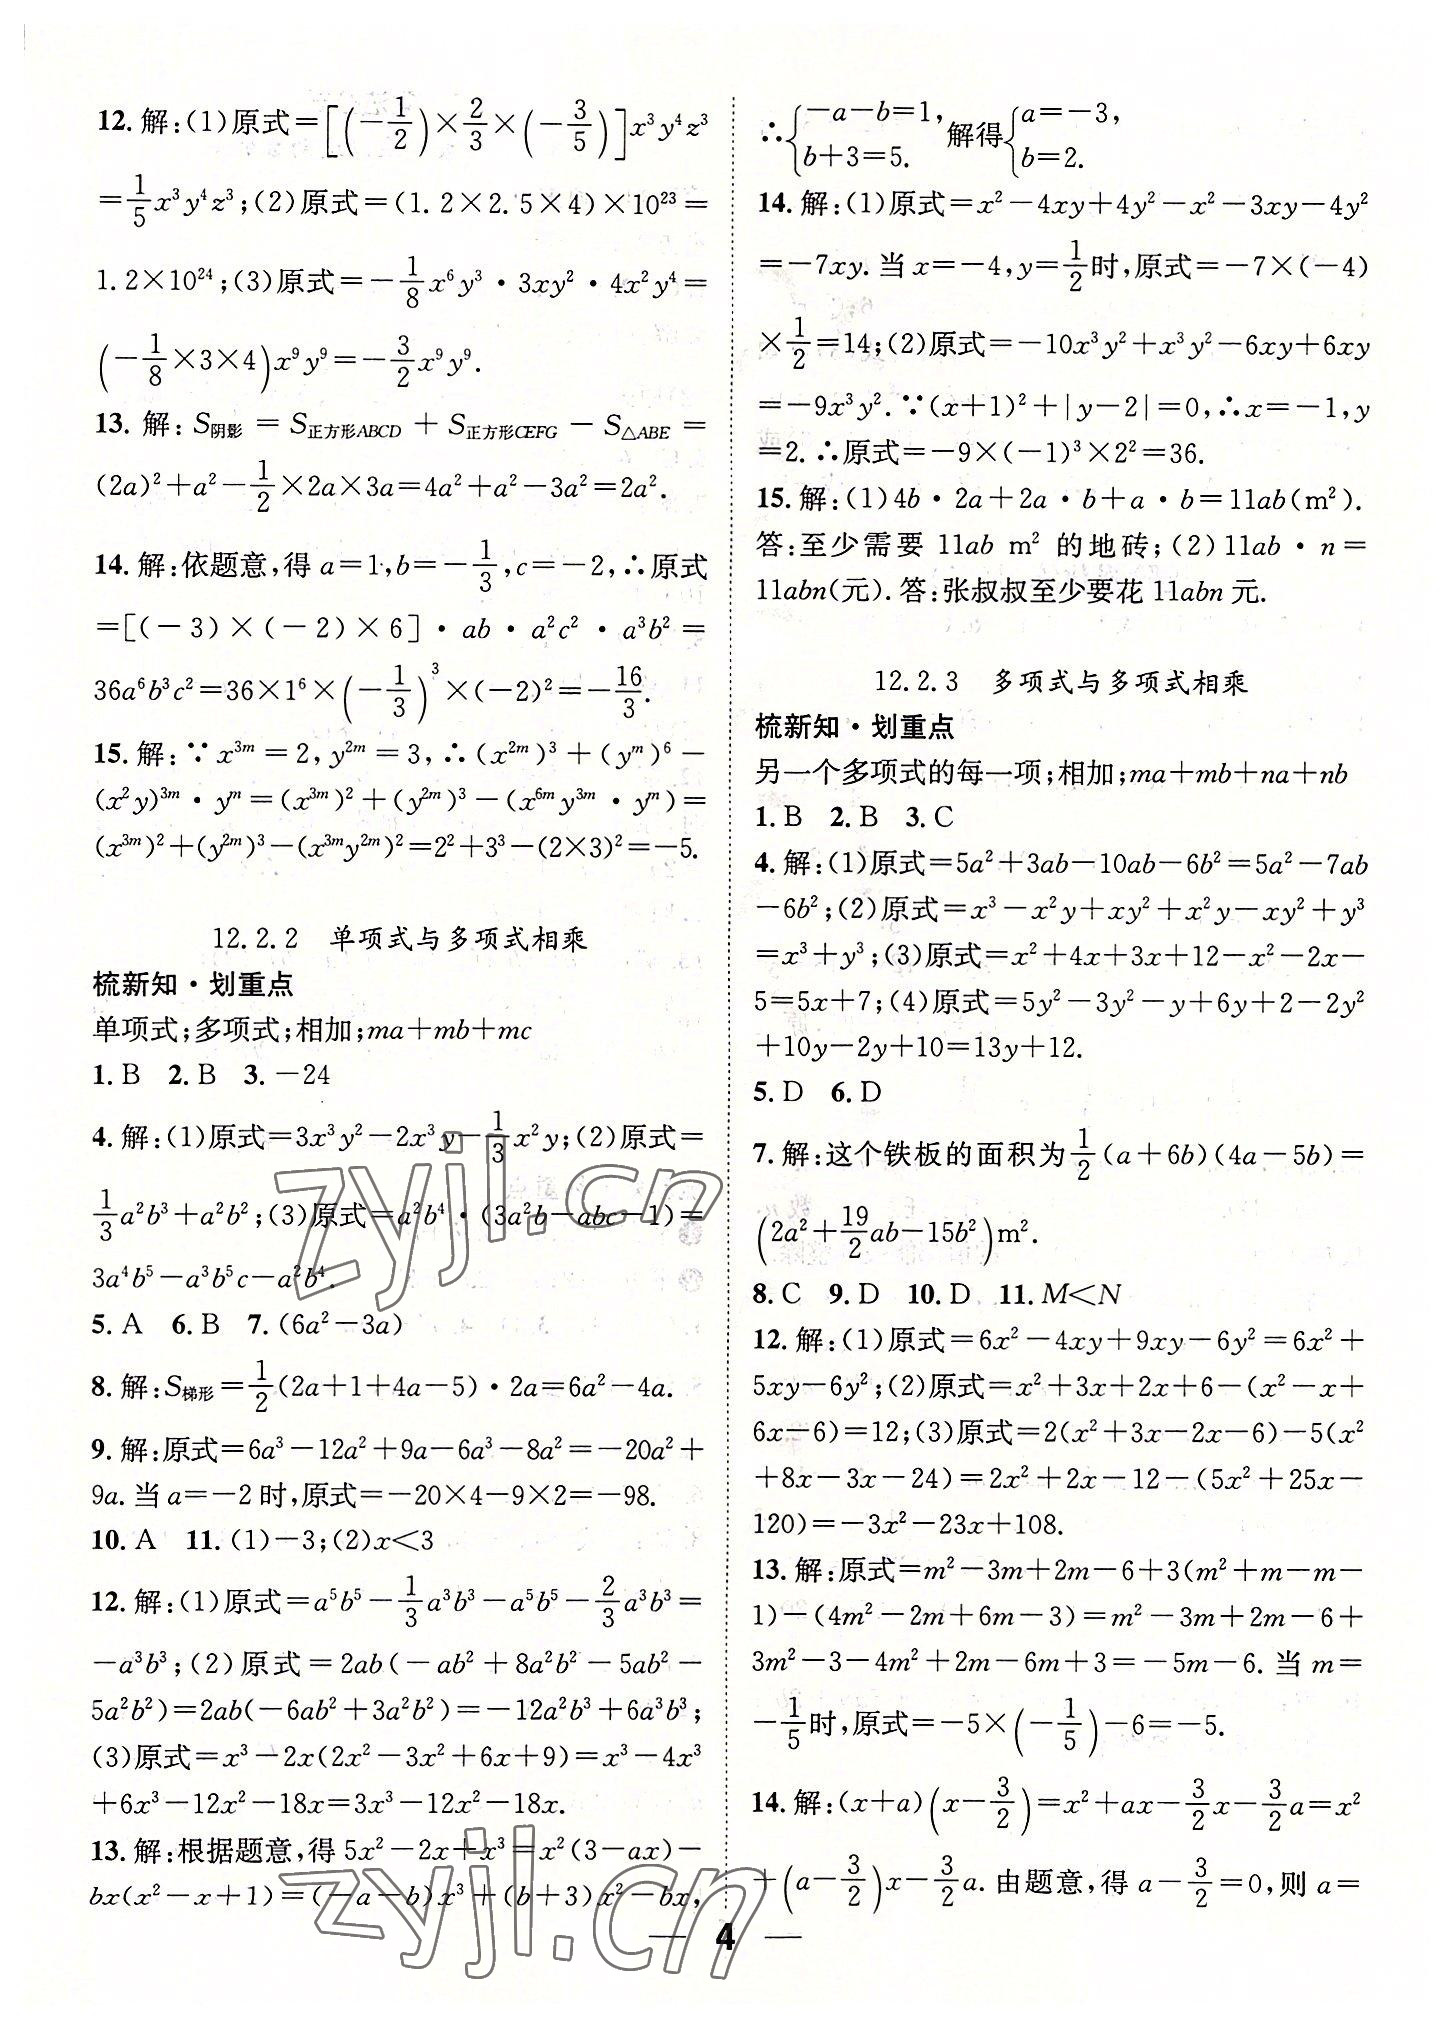 12. 解:(1)原式=[(-1/2)×2/3×(-3/5)]x³y⁴z³
=1/5x³y⁴z³;(2)原式=(1.2×2.5×4)×10²³=
1.2×10²⁴;(3)原式=-1/8x⁶y³·3xy²·4x²y⁴=
(-1/8×3×4)x⁹y⁹=-3/2x⁹y⁹.
13. 解:S阴影=S正方形ABCD+S正方形CEFG-S△ABE=
(2a)²+a²-1/2×2a×3a=4a²+a²-3a²=2a².
14. 解:依题意,得a=1,b=-1/3,c=-2,∴原式
=[(-3)×(-2)×6]·ab·a²c²·a³b²=
36a⁶b³c²=36×1⁶×(-1/3)³×(-2)²=-16/3.
15. 解:∵x³ᵐ=2,y²ᵐ=3,∴(x²ᵐ)³+(yᵐ)⁶-
(x²y)³ᵐ·yᵐ=(x³ᵐ)²+(y²ᵐ)³-(x⁶ᵐy³ᵐ·yᵐ)=
(x³ᵐ)²+(y²ᵐ)³-(x³ᵐy²ᵐ)²=2²+3³-(2×3)²=-5.
12.2.2 单项式与多项式相乘
梳新知·划重点
单项式;多项式;相加;ma+mb+mc
1. B 2. B 3. -24
4. 解:(1)原式=3x³y²-2x³y-1/3x²y;(2)原式=
1/3a²b³+a²b²;(3)原式=a²b⁴·(3a²b-abc-1)=
3a⁴b⁵-a³b⁵c-a²b⁴.
5. A 6. B 7. (6a²-3a)
8. 解:S梯形=1/2(2a+1+4a-5)·2a=6a²-4a.
9. 解:原式=6a³-12a²+9a-6a³-8a²=-20a²+
9a. 当a=-2时,原式=-20×4-9×2=-98.
10. A 11. (1)-3;(2)x<3
12. 解:(1)原式=a⁵b⁵-1/3a³b³-a⁵b⁵-2/3a³b³=
-a³b³;(2)原式=2ab(-ab²+8a²b²-5ab²-
5a²b²)=2ab(-6ab²+3a²b²)=-12a²b³+6a³b³;
(3)原式=x³-2x(2x²-3x²+6x+9)=x³-4x³
+6x³-12x²-18x=3x³-12x²-18x.
13. 解:根据题意,得5x²-2x+x³=x²(3-ax)-
bx(x²-x+1)=(-a-b)x³+(b+3)x²-bx,
∴{-a-b=1, b+3=5. 解得{a=-3, b=2.
14. 解:(1)原式=x²-4xy+4y²-x²-3xy-4y²
=-7xy. 当x=-4,y=1/2时,原式=-7×(-4)
×1/2=14;(2)原式=-10x³y²+x³y²-6xy+6xy
=-9x³y². ∵(x+1)²+|y-2|=0,∴x=-1,y
=2. ∴原式=-9×(-1)³×2²=36.
15. 解:(1)4b·2a+2a·b+a·b=11ab(m²).
答:至少需要 11ab m² 的地砖;(2)11ab·n=
11abn(元). 答:张叔叔至少要花11abn元.
12.2.3 多项式与多项式相乘
梳新知·划重点
另一个多项式的每一项;相加;ma+mb+na+nb
1. B 2. B 3. C
4. 解:(1)原式=5a²+3ab-10ab-6b²=5a²-7ab
-6b²;(2)原式=x³-x²y+xy²+x²y-xy²+y³
=x³+y³;(3)原式=x²+4x+3x+12-x²-2x-
5=5x+7;(4)原式=5y²-3y²-y+6y+2-2y²
+10y-2y+10=13y+12.
5. D 6. D
7. 解:这个铁板的面积为1/2(a+6b)(4a-5b)=
(2a²+19/2ab-15b²)m².
8. C 9. D 10. D 11. M<N
12. 解:(1)原式=6x²-4xy+9xy-6y²=6x²+
5xy-6y²;(2)原式=x²+3x+2x+6-(x²-x+
6x-6)=12;(3)原式=2(x²+3x-2x-6)-5(x²
+8x-3x-24)=2x²+2x-12-(5x²+25x-
120)=-3x²-23x+108.
13. 解:原式=m²-3m+2m-6+3(m²+m-m-
1)-(4m²-2m+6m-3)=m²-3m+2m-6+
3m²-3-4m²+2m-6m+3=-5m-6. 当m=
-1/5时,原式=-5×(-1/5)-6=-5.
14. 解:(x+a)(x-3/2)=x²+ax-3/2x-3/2a=x²
+(a-3/2)x-3/2a. 由题意,得a-3/2=0,则a=
— 4 —
zyjl.cn
zyjl.cn